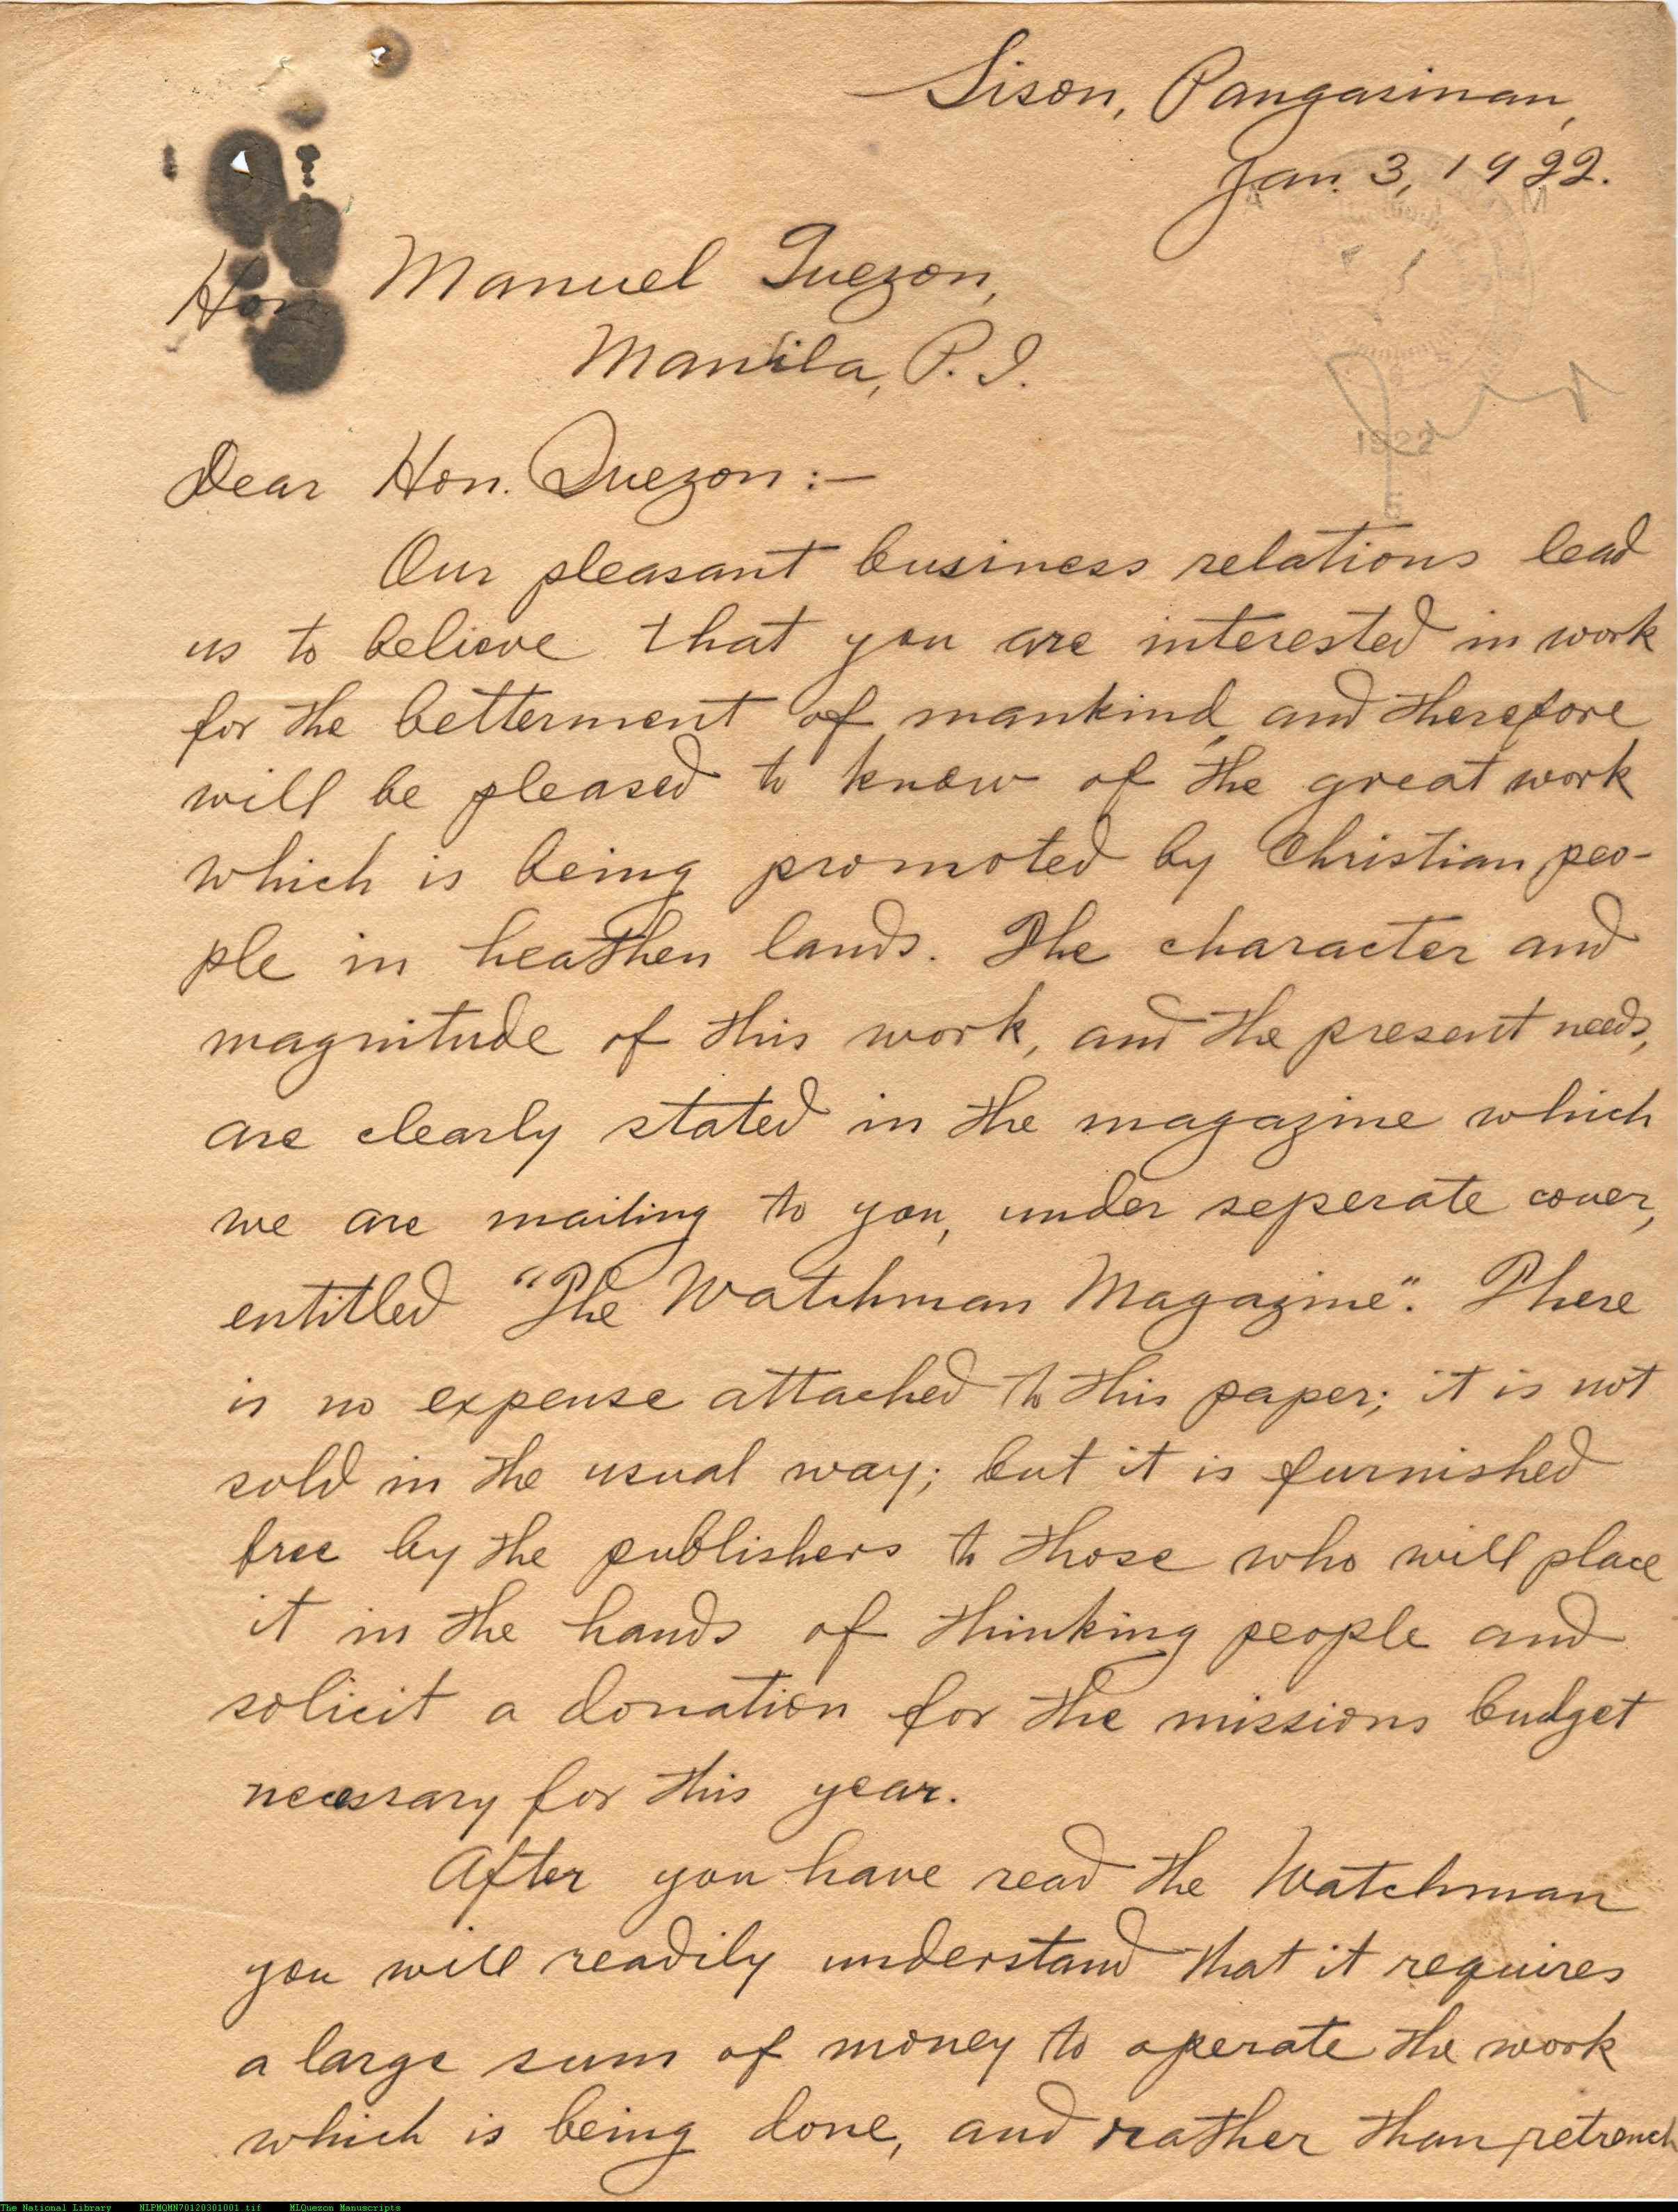 Sison, Pangasinan,
Jan. 3, 1922.
Hon Manuel Quezon,
Manila, P. I.
1922
Dear Hon. Quezon:—
Our pleasant business relations lead
us to believe that you are interested in work
for the betterment of mankind, and therefore
will be pleased to know of the great work
which is being promoted by Christian peo-
ple in heathen lands. The character and
magnitude of this work, and the present needs,
are clearly stated in the magazine which
we are mailing to you, under seperate cover,
entitled "The Watchman Magazine". There
is no expense attached to this paper; it is not
sold in the usual way; but it is furnished
free by the publishers to those who will place
it in the hands of thinking people and
solicit a donation for the missions budget
necessary for this year.
After you have read the Watchman
you will readily understand that it requires
a large sum of money to operate the work
which is being done, and rather than retrench
The National Library NLPMQMN70120301001.tif MLQuezon Manuscripts